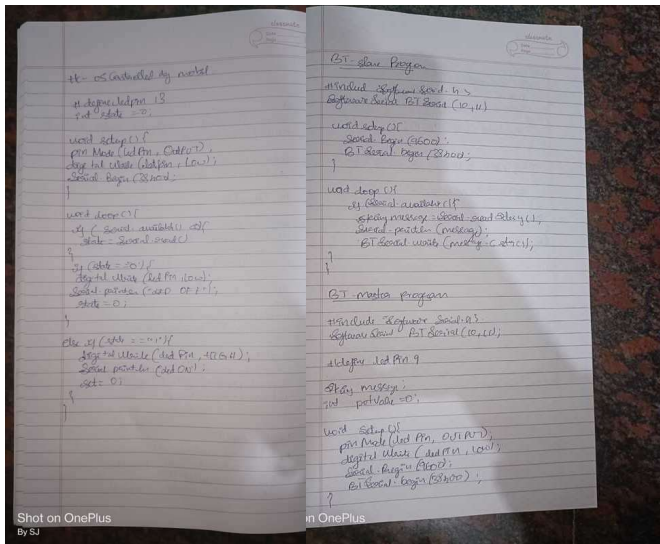 classmate
Date
Page
HC-05 Controlled by mobil
# define ledpin 13
int state = 0;
void setup(){
pin Mode (led Pin, OUTPUT);
digital Write (ledpin, LOW);
Serial. Begin (38400);
}
void loop(){
if ( Serial. available() >0){
state = Serial.read()
}
if (state == '0'){
digital Write (led Pin, LOW);
Serial println ("LED OFF");
state = 0;
}
else if (state == '1'){
digital Write (led Pin, HIGH);
Serial println (led ON);
set= 0;
}
}
classmate
Date
Page
BT-slave Program
#includ Software Serial. h>
Software Serial BT Serial (10,11)
void setup(){
Serial. Begin (9600);
BT Serial. begin (38400);
}
void loop(){
if (Serial. available()){
string message = Serial. read String();
Serial. println (message);
BT Serial. write (message. C_str());
}
}
BT-master program
#include Software Serial.h>
Software Serial BT Serial (10,11);
#define led Pin 9
String message;
int potValue =0;
void setup(){
pin Mode (led Pin, OUTPUT);
digital Write (led Pin, LOW);
Serial. Begin (9600);
BT Serial. begin (38400);
}
Shot on OnePlus
By SJ
n OnePlus